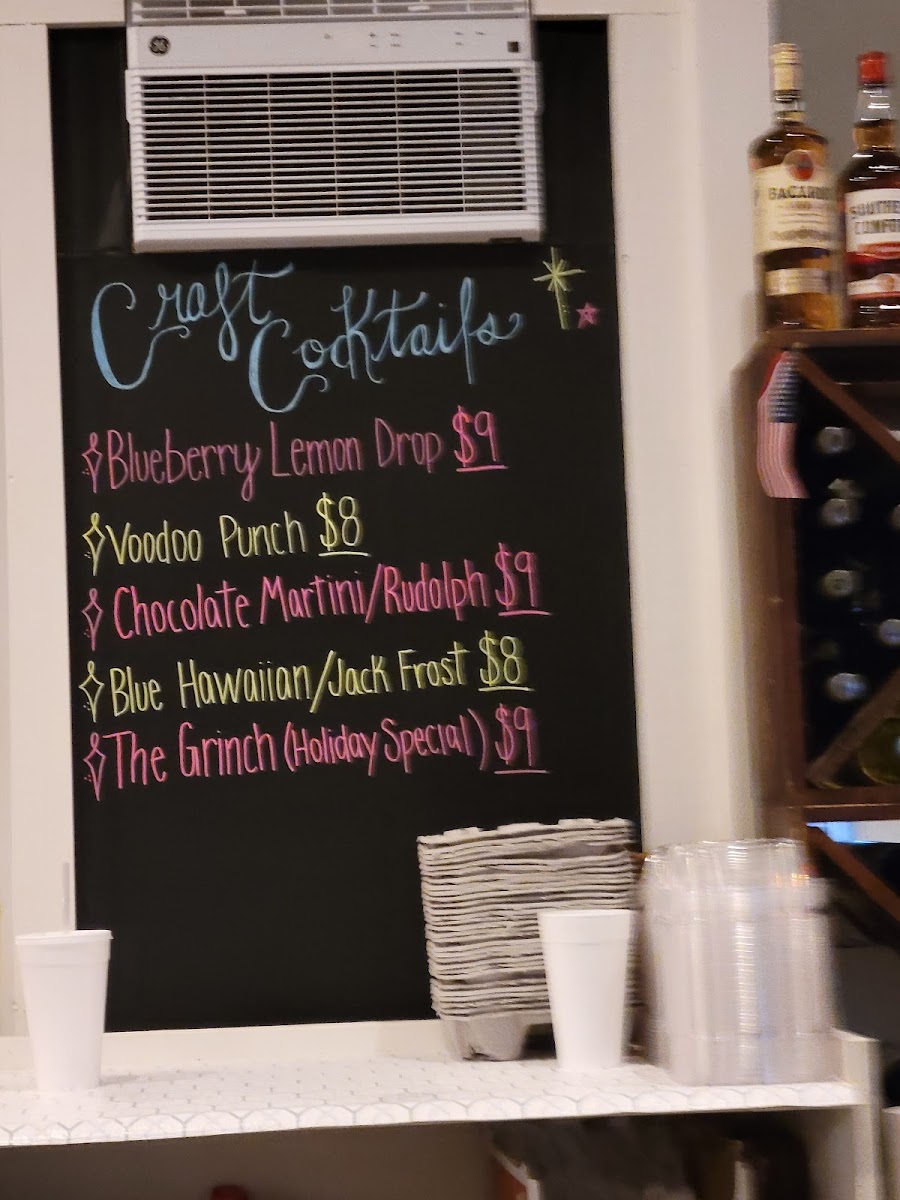 GE
Craft
Cocktails
Blueberry Lemon Drop $9
Voodoo Punch $8
Chocolate Martini/Rudolph $9
Blue Hawaiian/Jack Frost $8
The Grinch (Holiday Special) $9
BACARDI
SOUTHERN
COMFORT